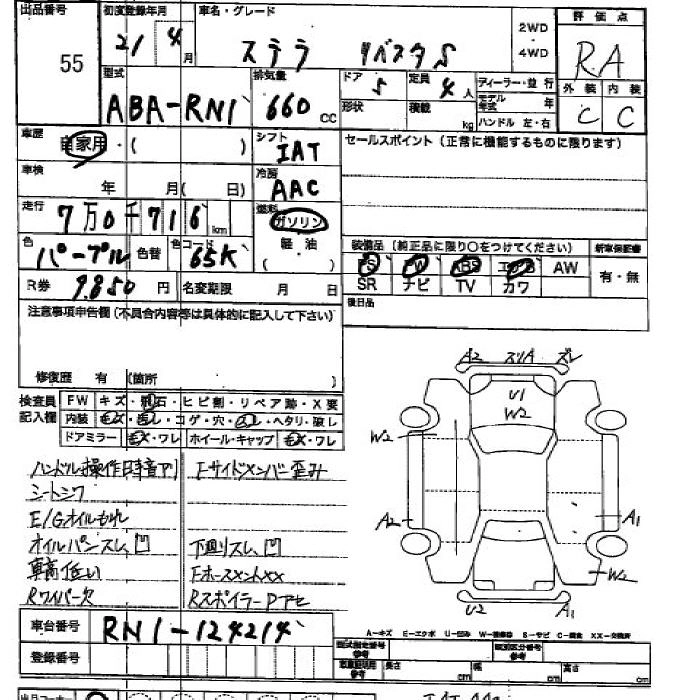 出品番号 初度登録年月 車名・グレード 2WD 評価点
55 21 4月 ステラ リベスタS 4WD RA
型式 排気量 ドア 定員 ディーラー・並行 外装 内装
ABA-RN1 660cc 5 4人 モデル年式 年 C C
形状 積載 kg ハンドル 左・右
車歴 自家用・( ) シフト IAT セールスポイント(正常に機能するものに限ります)
車検 年 月( 日) 冷房 AAC
走行 7万0千716km 燃料 ガソリン
色 パープル 色替 色コード 65K 軽油 ( )
装備品(純正品に限り○をつけてください) 新車保証書
PS PW ABS エアB AW 有・無
SR ナビ TV カワ
R券 9850円 名変期限 月 日 後日品
注意事項申告欄(不具合内容等は具体的に記入して下さい)
修復歴 有 (箇所
検査員記入欄 FW キズ・飛石・ヒビ割・リペア跡・X要
内装 コゲ・穴・ ・ヘタリ・破レ
ドアミラー キズ・ワレ ホイール・キャップ キズ・ワレ
ハンドル操作時異音アリ Fサイドメンバー歪み
シートシワ
E/Gオイルもれ
オイルパンスレ、凹 下廻りスレ、凹
車高低い
Rワイパー欠 Rスポイラー
A2 スリA ズレ
U1
W2
W2
A2 A1
W2
U2 A1
A-キズ E-エクボ U-凹み W-補修跡 S-サビ C-腐食 XX-交換済
車台番号 RN1-124214
登録番号
型式指定番号 参考 類別区分番号 参考
長さ cm 幅 cm 高さ cm